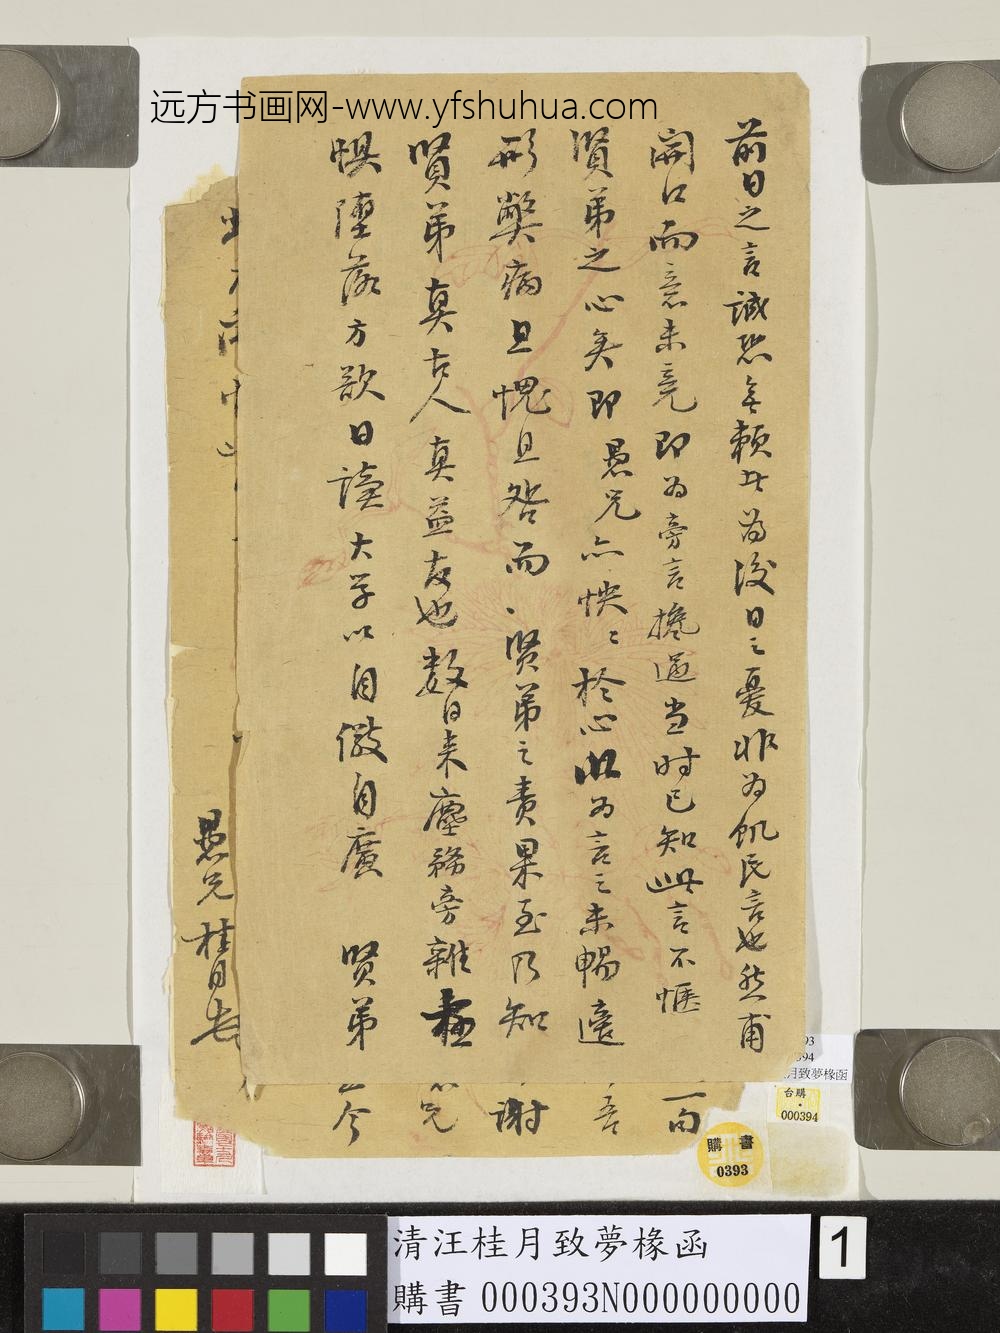 远方书画网-www.yfshuhua.com
前日之言誠恐無賴此為後日之憂非為飢民言也然甫
開口而意未竟即為旁言攙過當时已知此言不愜
賢弟之心矣即愚兄亦怏〻於心此為言之未暢適
形弊病且愧且咎而賢弟之責果至乃知
賢弟真古人真益友也数日來塵務旁雜
惧墮落方欲日讀大学以自儆自廣 賢弟
愚兄桂月
一百
吾
謝
兄
今
月致夢椽函
台購
000394
購書
0393
清汪桂月致夢椽函
購書 000393N000000000
1